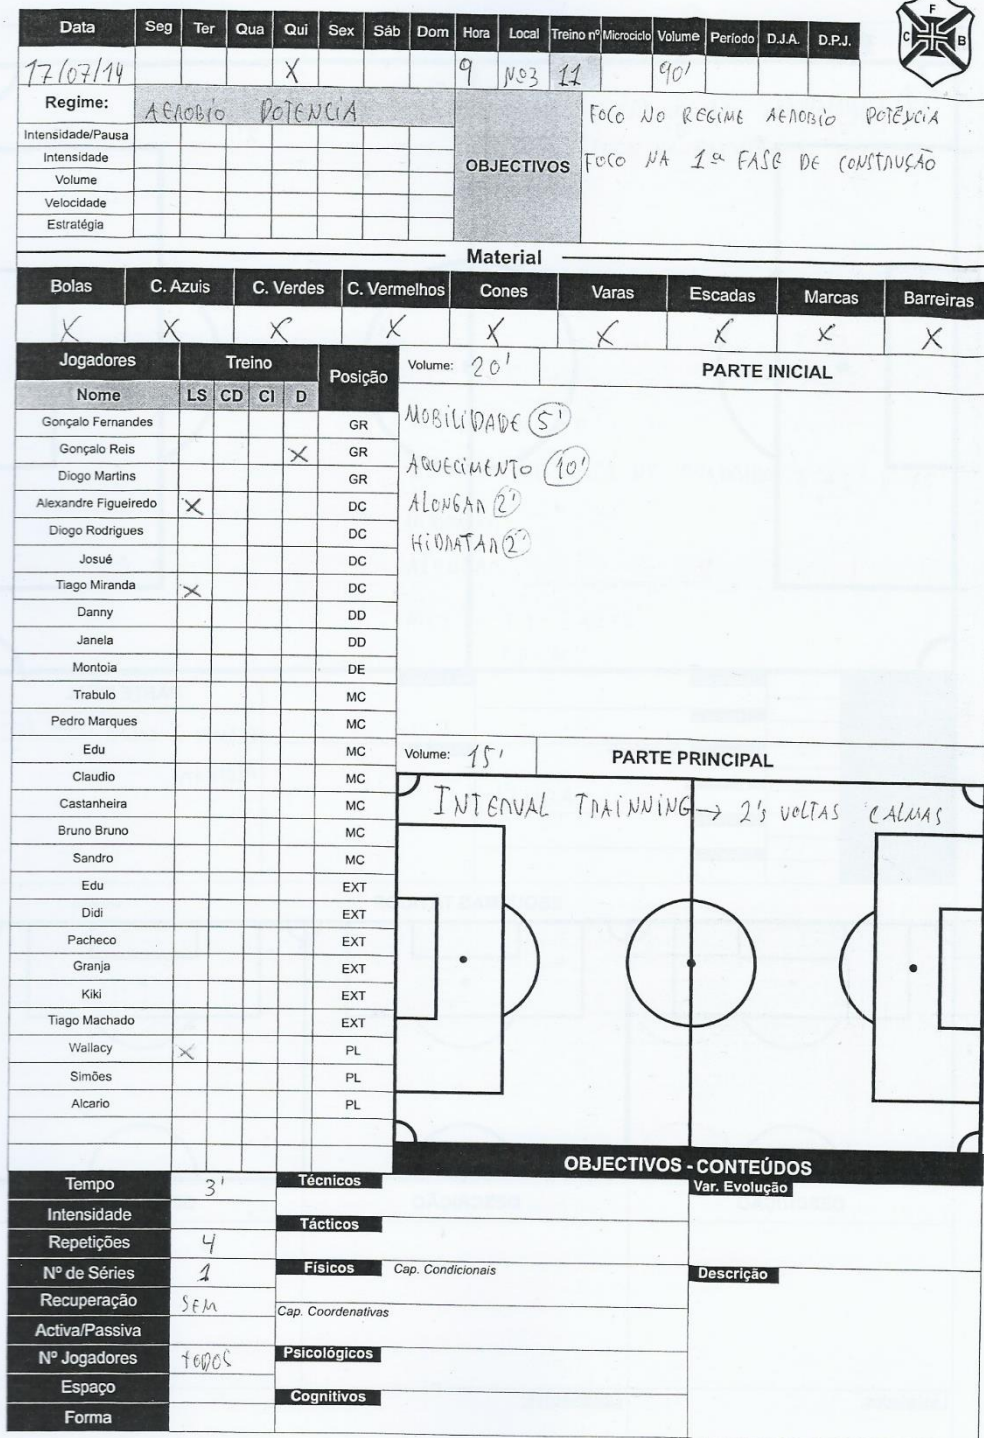 F
C B
Data Seg Ter Qua Qui Sex Sáb Dom Hora Local Treino nº Microciclo Volume Período D.J.A. D.P.J.
17/07/14 X 9 Nº3 11 90'
Regime: AERÓBIO POTENCIA
Intensidade/Pausa
Intensidade
Volume
Velocidade
Estratégia
OBJECTIVOS
FOCO NO REGIME AERÓBIO POTÊNCIA
FOCO NA 1ª FASE DE CONSTRUÇÃO
Material
Bolas C. Azuis C. Verdes C. Vermelhos Cones Varas Escadas Marcas Barreiras
X X X X X X X X X
Jogadores Treino Posição
Nome LS CD CI D
Gonçalo Fernandes GR
Gonçalo Reis X GR
Diogo Martins GR
Alexandre Figueiredo X DC
Diogo Rodrigues DC
Josué DC
Tiago Miranda X DC
Danny DD
Janela DD
Montoia DE
Trabulo MC
Pedro Marques MC
Edu MC
Claudio MC
Castanheira MC
Bruno Bruno MC
Sandro MC
Edu EXT
Didi EXT
Pacheco EXT
Granja EXT
Kiki EXT
Tiago Machado EXT
Wallacy X PL
Simões PL
Alcario PL
Volume: 20' PARTE INICIAL
MOBILIDADE 5'
AQUECIMENTO 10'
ALONGAR 2'
HIDRATAR 2'
Volume: 15' PARTE PRINCIPAL
INTERVAL TRAINNING → 2's VOLTAS CALMAS
OBJECTIVOS - CONTEÚDOS
Tempo 3'
Intensidade
Repetições 4
Nº de Séries 1
Recuperação SEM
Activa/Passiva
Nº Jogadores TODOS
Espaço
Forma
Técnicos
Tácticos
Físicos Cap. Condicionais
Cap. Coordenativas
Psicológicos
Cognitivos
Var. Evolução
Descrição